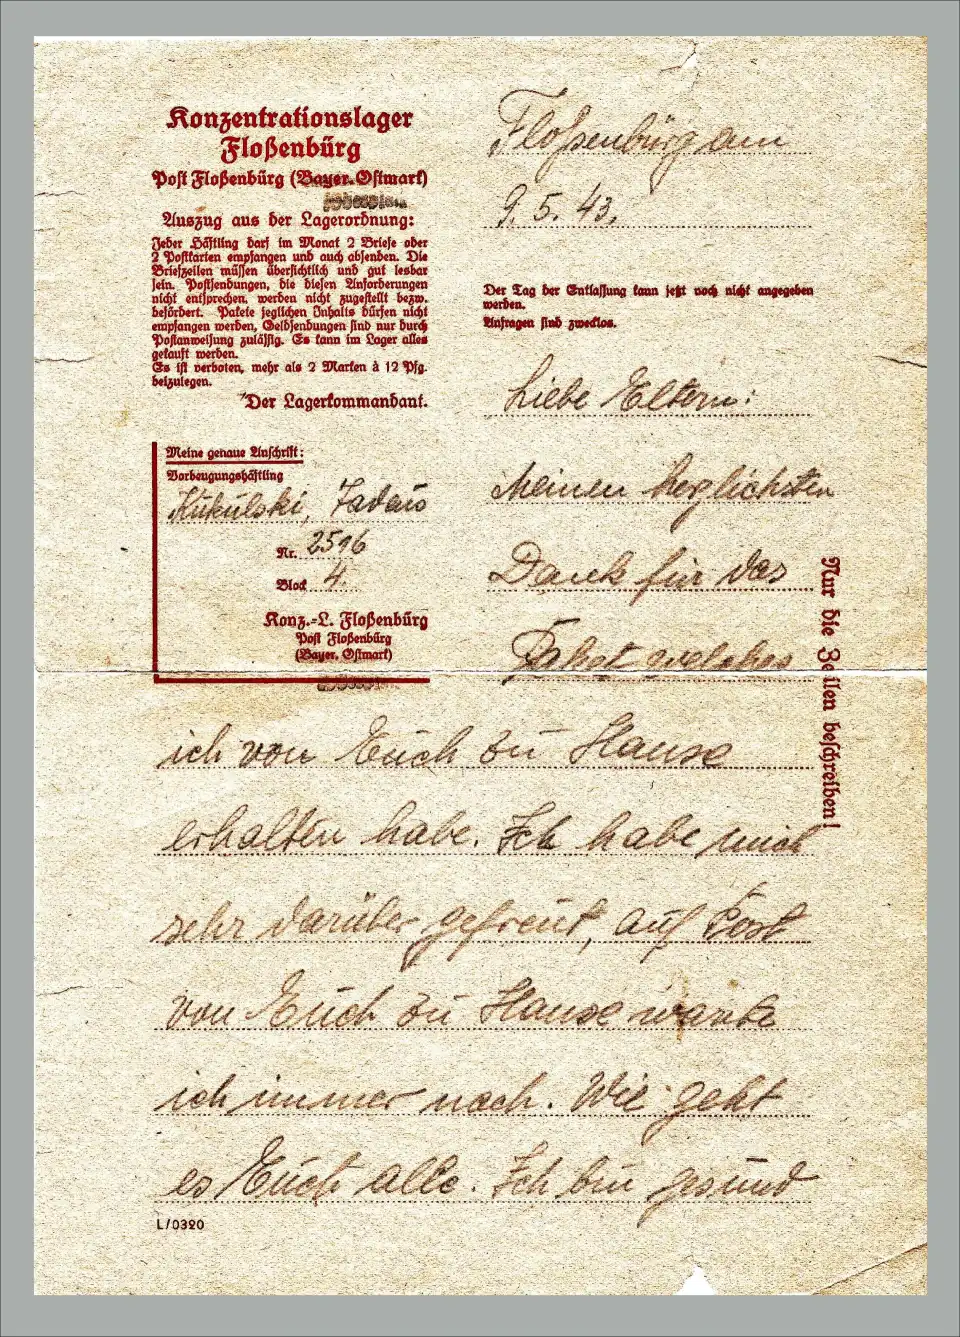 Konzentrationslager
Floßenbürg
Post Floßenbürg (Bayer. Ostmark)
Auszug aus der Lagerordnung:
Jeder Häftling darf im Monat 2 Briefe oder
2 Postkarten empfangen und auch absenden. Die
Briefzeilen müssen übersichtlich und gut lesbar
sein. Postsendungen, die diesen Anforderungen
nicht entsprechen, werden nicht zugestellt bezw.
befördert. Pakete jeglichen Inhalts dürfen nicht
empfangen werden, Geldsendungen sind nur durch
Postanweisung zulässig. Es kann im Lager alles
gekauft werden.
Es ist verboten, mehr als 2 Marken à 12 Pfg.
beizulegen.
Der Lagerkommandant.
Meine genaue Anschrift:
Vorbeugungshäftling
Kukulski, Tadeus
Nr. 2516
Block 4.
Konz.-L. Floßenbürg
Post Floßenbürg
(Bayer. Ostmark)
Floßenbürg am
9. 5. 43.
Der Tag der Entlassung kann jetzt noch nicht angegeben
werden.
Anfragen sind zwecklos.
Liebe Eltern:
Meinen herzlichsten
Dank für das
Paket welches
ich von Euch zu Hause
erhalten habe. Ich habe mich
sehr darüber gefreut, auf Post
von Euch zu Hause warte
ich immer noch. Wie geht
es Euch alle. Ich bin gesund
Nur die Zeilen beschreiben!
L/0320